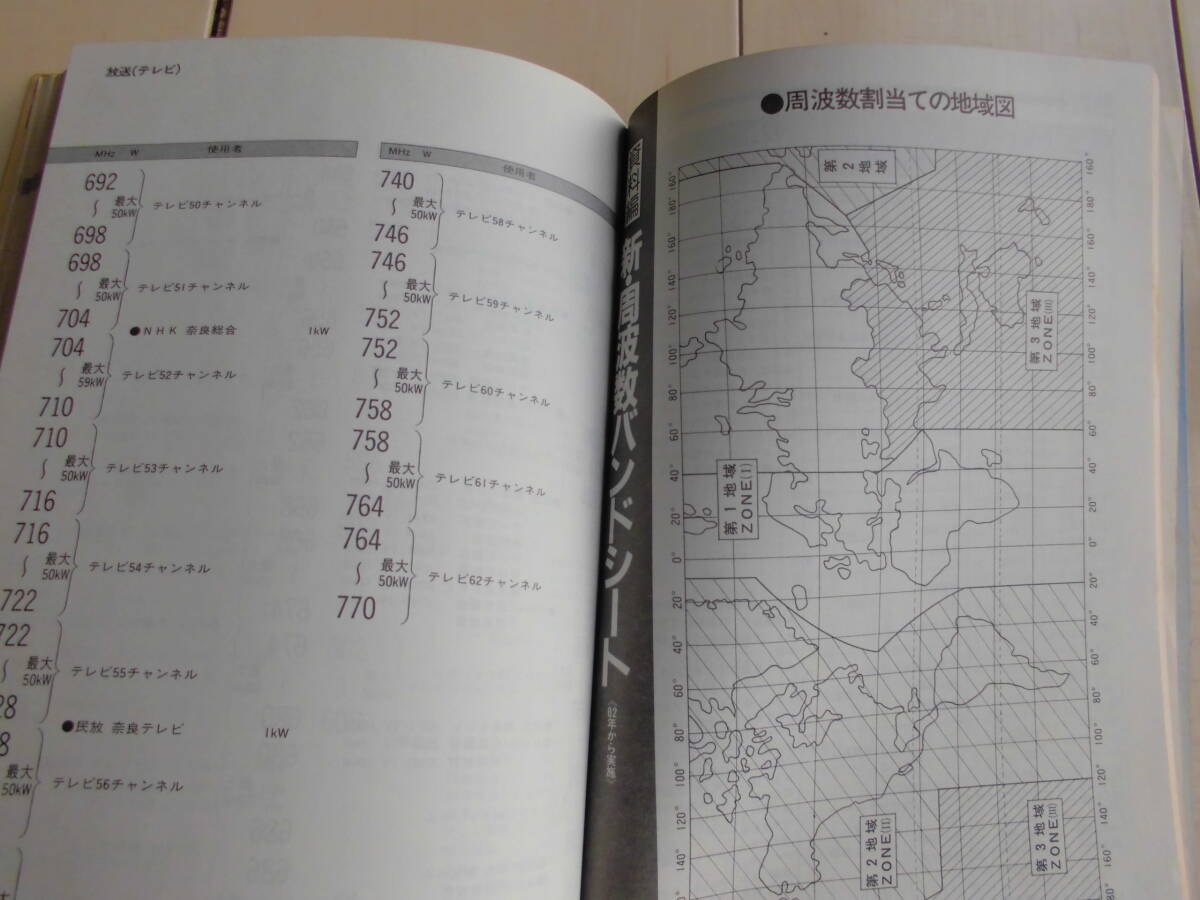 放送(テレビ)
MHz W 使用者
692
〜 最大 50kW テレビ50チャンネル
698
698
〜 最大 50kW テレビ51チャンネル
704
●NHK 奈良総合 1kW
704
〜 最大 59kW テレビ52チャンネル
710
710
〜 最大 50kW テレビ53チャンネル
716
716
〜 最大 50kW テレビ54チャンネル
722
722
〜 最大 50kW テレビ55チャンネル
28
●民放 奈良テレビ 1kW
8
最大 50kW テレビ56チャンネル
MHz W 使用者
740
〜 最大 50kW テレビ58チャンネル
746
746
〜 最大 50kW テレビ59チャンネル
752
752
〜 最大 50kW テレビ60チャンネル
758
758
〜 最大 50kW テレビ61チャンネル
764
764
〜 最大 50kW テレビ62チャンネル
770
資料編 新・周波数バンドシート
〈82年から実施〉
●周波数割当ての地域図
第2地域
第3地域
ZONE(III)
第1地域
ZONE(I)
第2地域
ZONE(II)
第3地域
ZONE(III)
160° 180° 160° 140° 120° 100° 80° 60° 40° 20° 0° 20° 40° 60° 80° 100° 120° 140°
160° 180° 160° 140° 120° 100° 80° 60° 40° 20° 0° 20° 40° 60° 80° 100° 120° 140° 160°